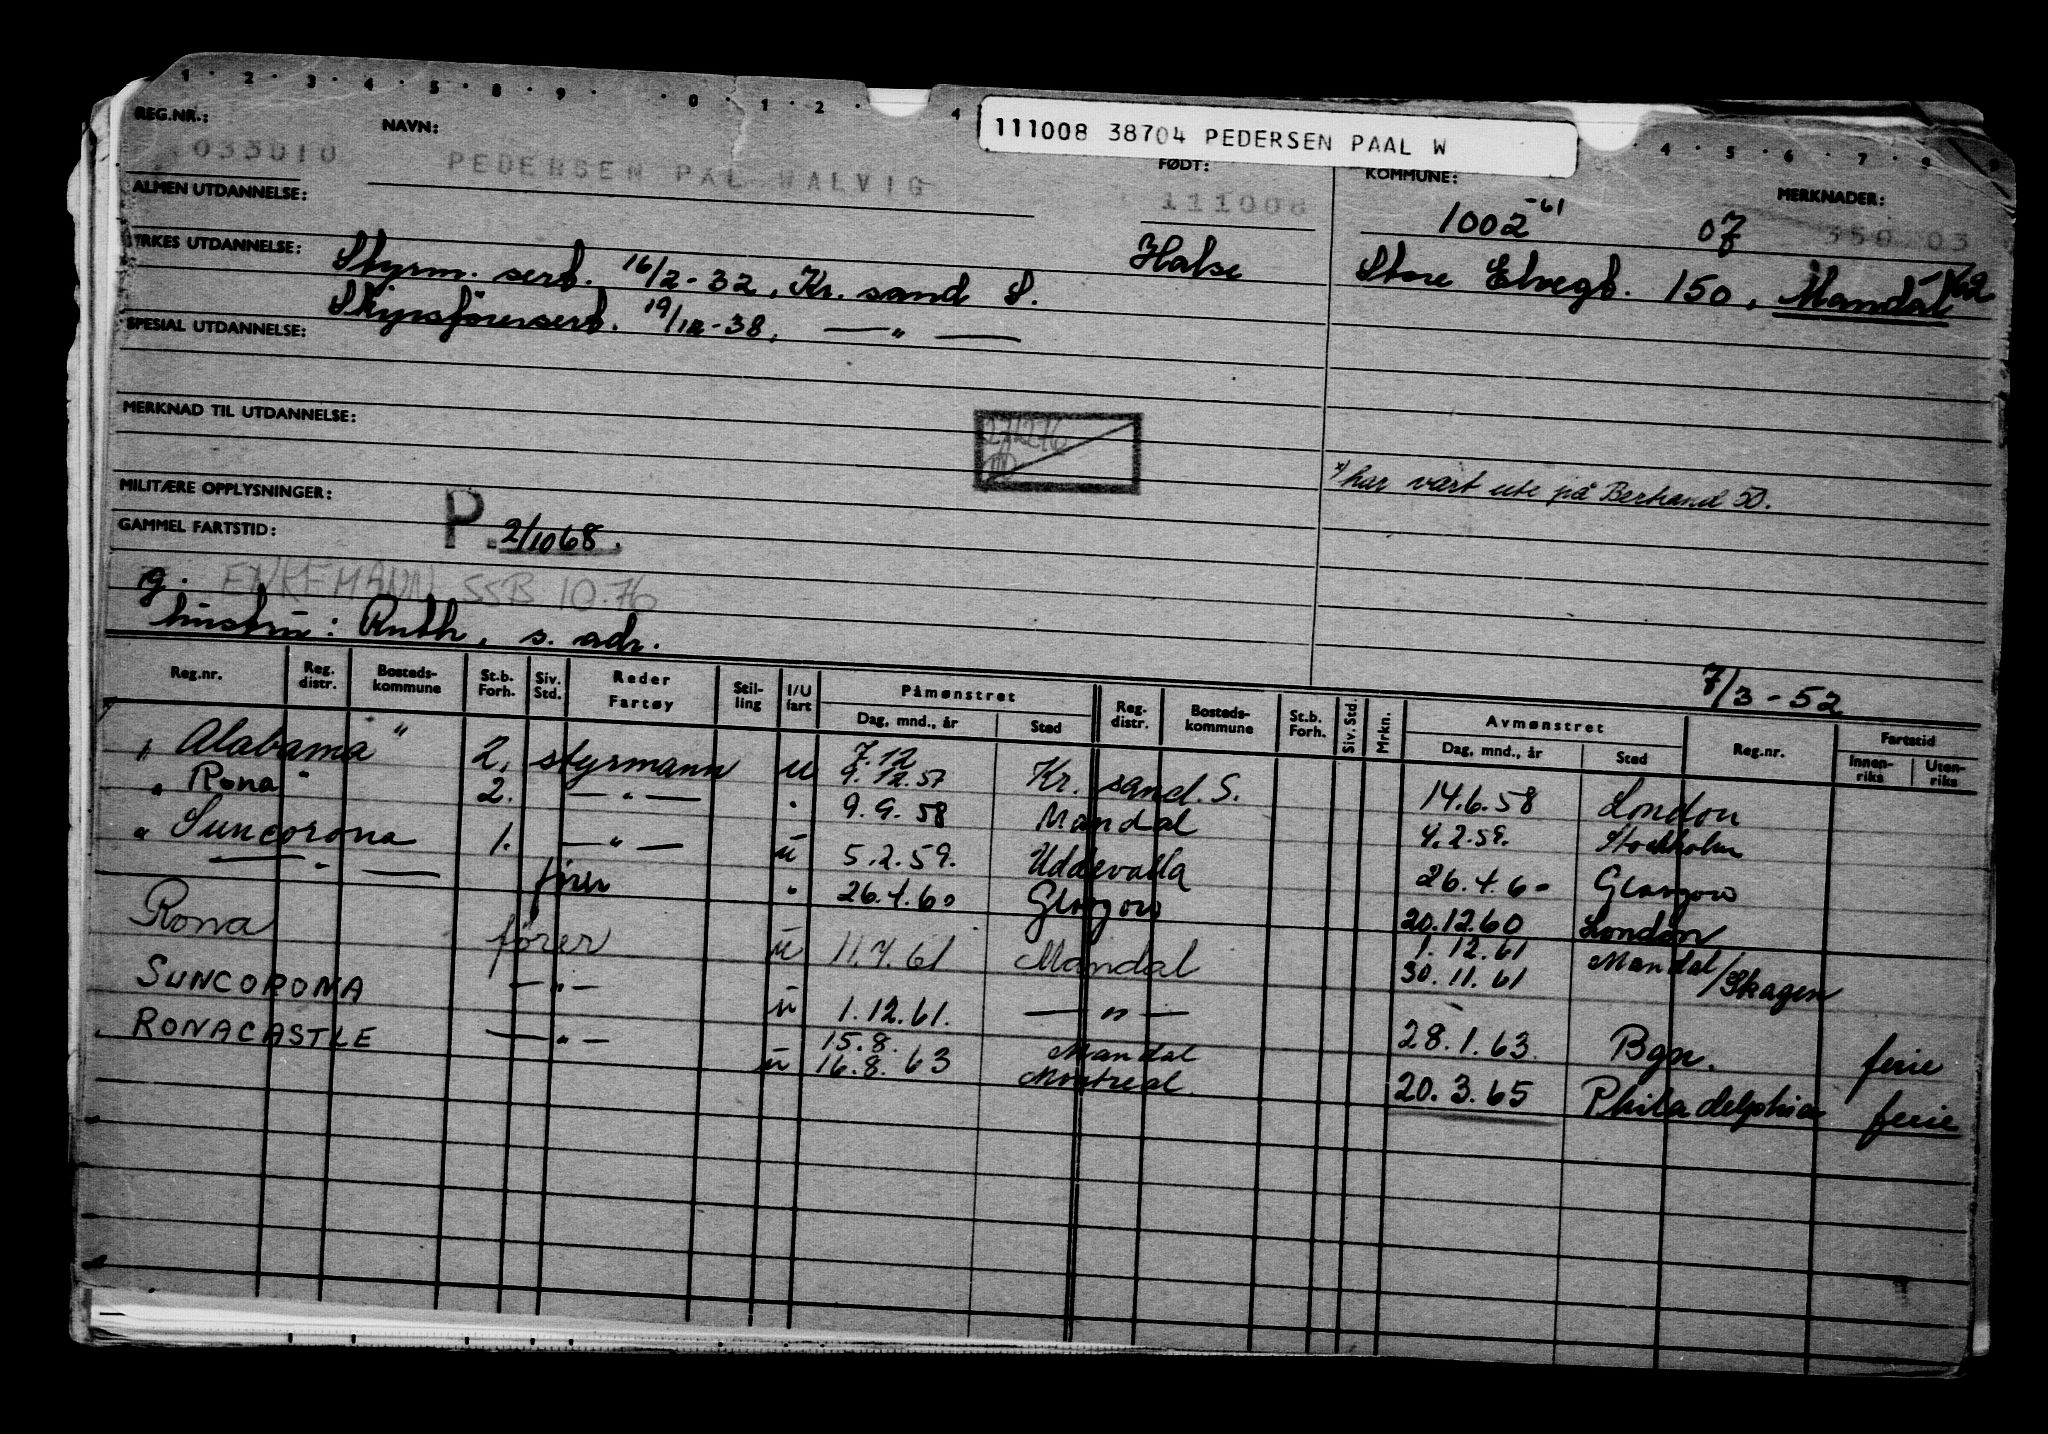 1 · 2 · 3 · 4 · 5 · 8 · 9 · · 0 · 1 · 2 · 4 4 · 5 · 6 · 7 · 8 9
111008 38704 PEDERSEN PAAL W
REG.NR.: NAVN: FØDT: KOMMUNE: MERKNADER:
033010 PEDERSEN PAL HALVIG 111008 1002 -61 07 350 03
ALMEN UTDANNELSE:
YRKES UTDANNELSE: Styrm. serb. 16/2-32, Kr. sand S. Halse Store Elvegt. 150, Mandal -62
Skipsførerserb. 19/12-38, — " —
SPESIAL UTDANNELSE:
MERKNAD TIL UTDANNELSE:
271276
x) har vært ute på Bertrand 50.
MILITÆRE OPPLYSNINGER:
GAMMEL FARTSTID: P. 2/10 68.
g. ENKEMANN SSB 10.76
hustru: Ruth, s. adr.
7/3-52
Reg.nr. Reg. distr. Bosteds-kommune St.b. Forh. Siv. Std. Reder Fartøy Stil-ling I/U fart Påmønstret Dag, mnd., år Sted Reg. distr. Bosteds-kommune St.b. Forh. Siv. Std. Mrkn. Avmønstret Dag, mnd., år Sted Reg.nr. Fartstid Innen-riks Uten-riks
"Alabama" 2. styrmann u 7.12 9.12.57 Kr. sand. S. 14.6.58 London
"Rona" 2. — " — " 9.9.58 Mandal 4.2.59. Stockholm
"Suncorona 1. — " — u 5.2.59. Uddevalla 26.4.60 Glasgow
— " — fører " 26.4.60 Glasgow 20.12.60 London
Rona fører u 11.4.61 Mandal 1.12.61 30.11.61 Mandal/Skagen
SUNCORONA — " — u 1.12.61. — " — 28.1.63. Bgn. ferie
RONACASTLE — " — u 15.8. 16.8.63 Mandal Montreal. 20.3.65 Philadelphia ferie